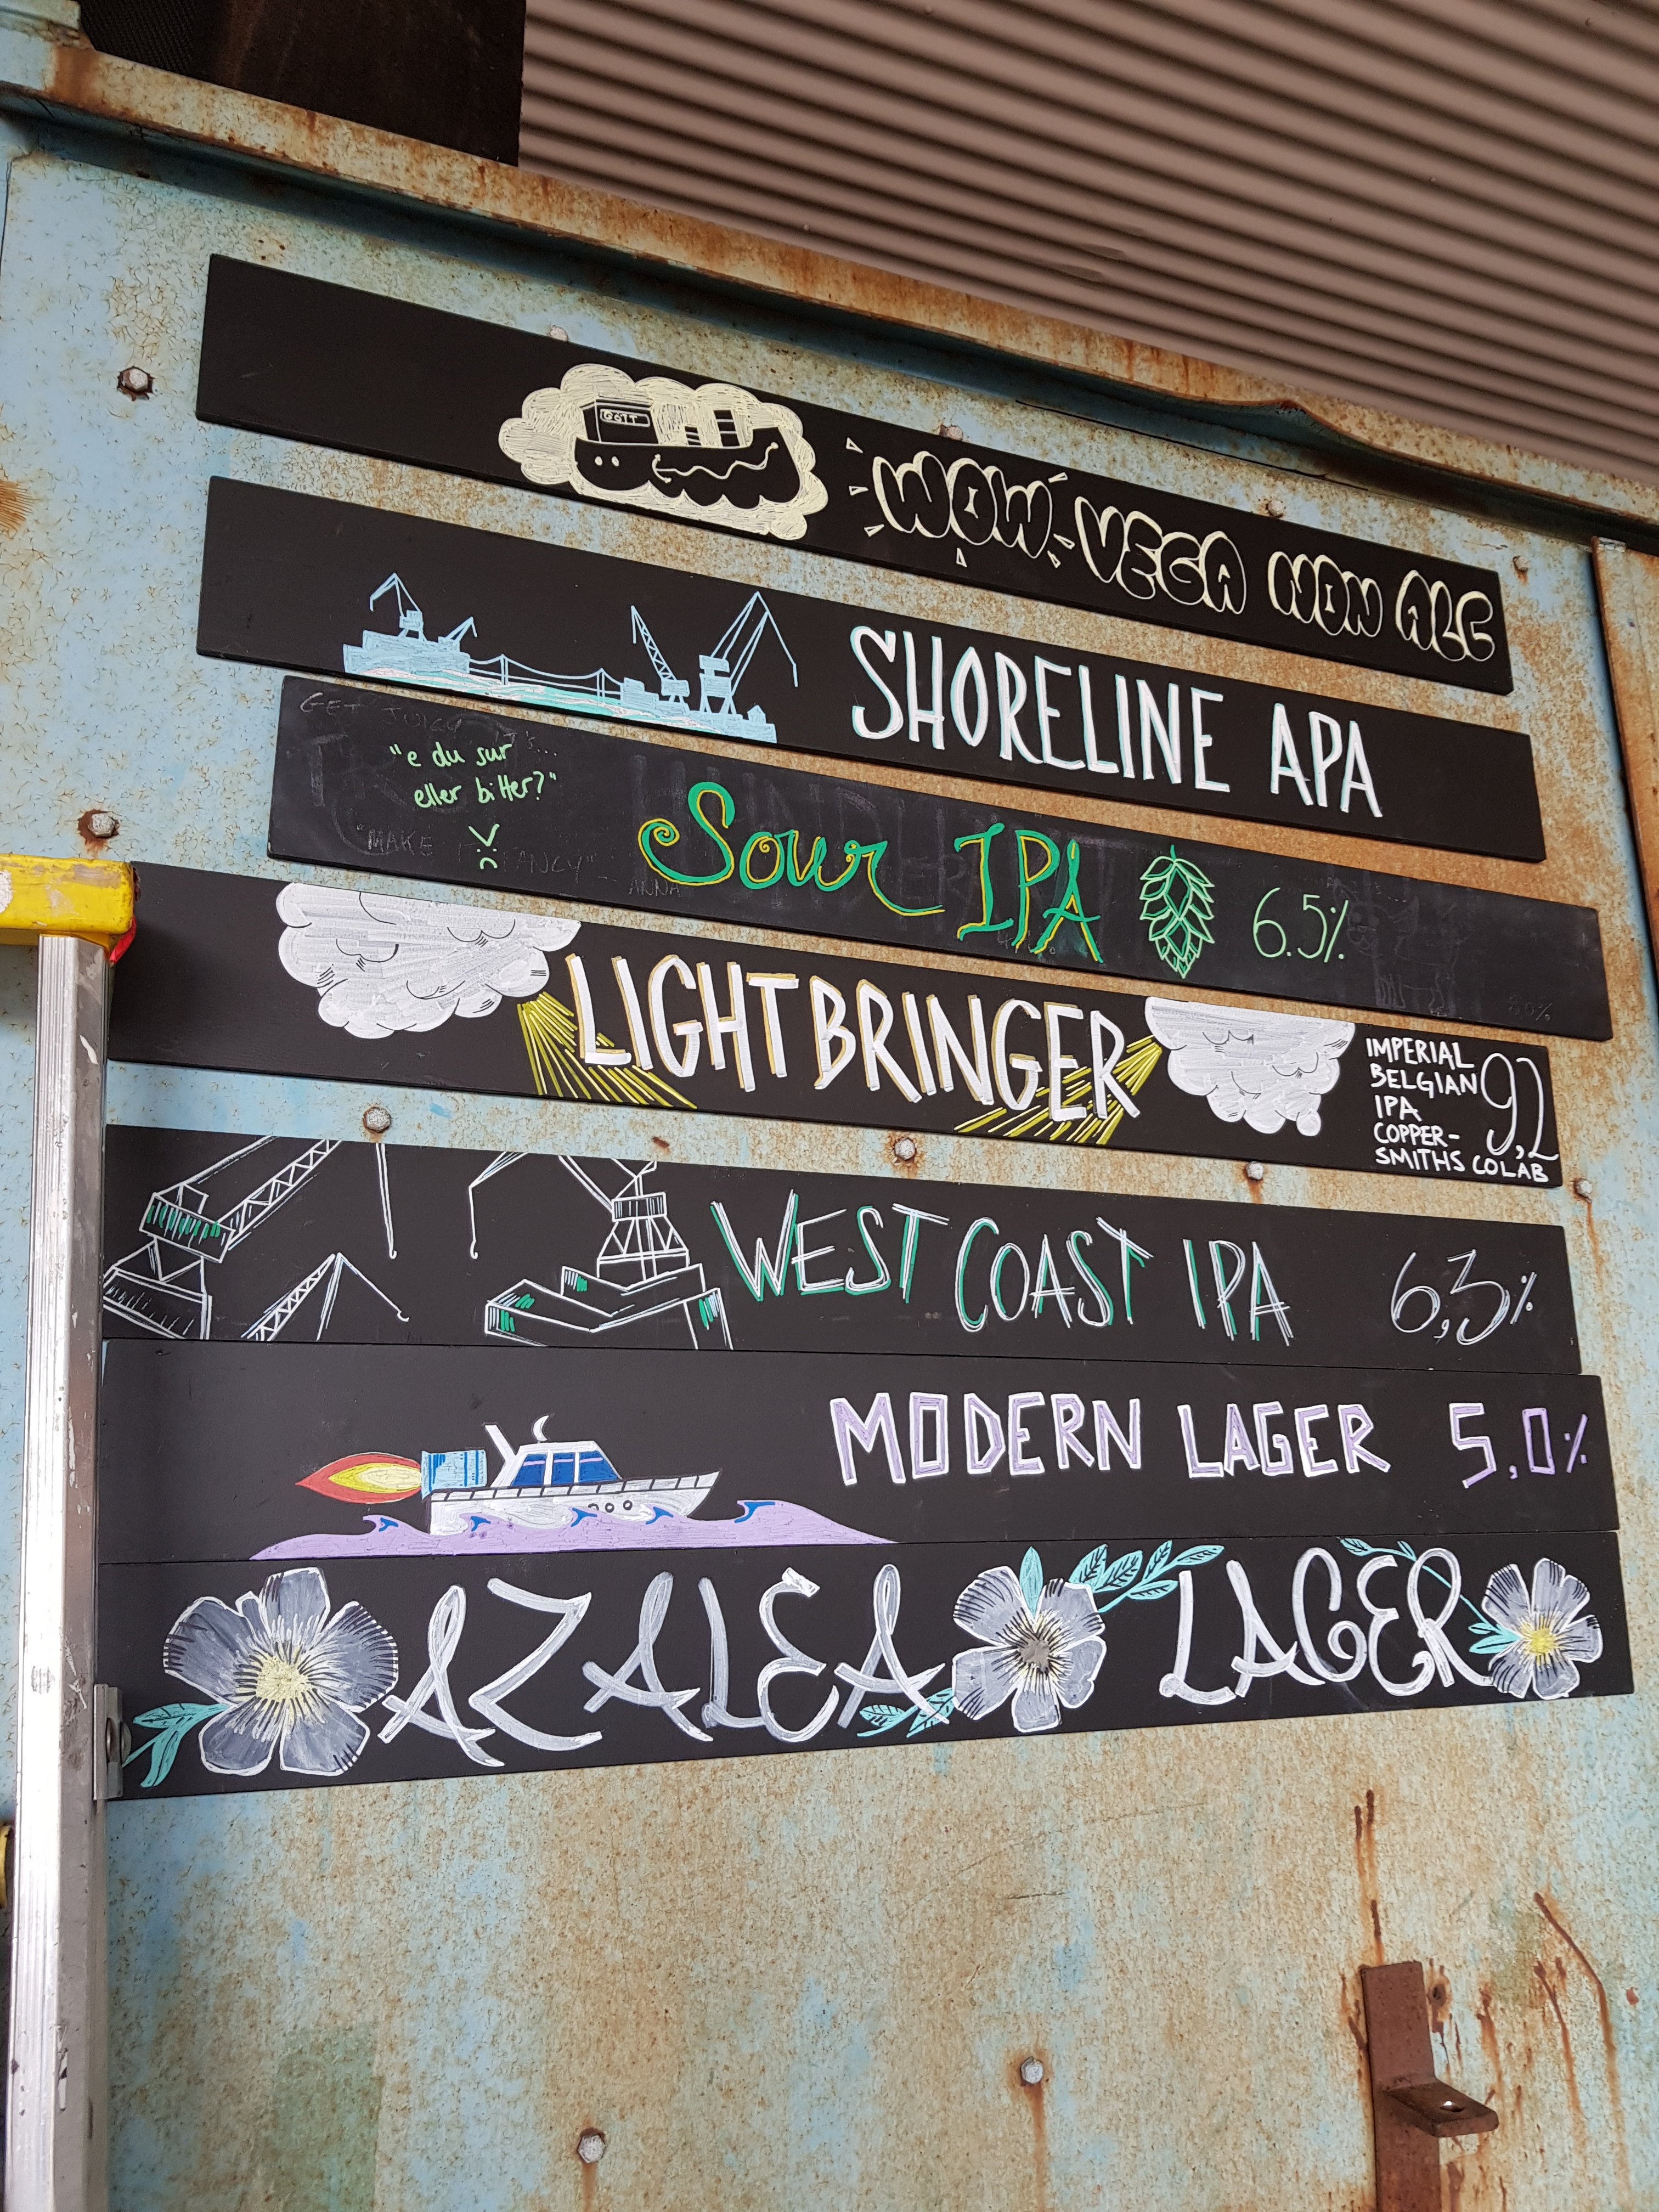 WOW VEGA NON ALC
SHORELINE APA
GET JUICY IT's...
"e du sur
eller bitter?"
"MAKE IT FANCY"
ANNA
Sour IPA 6.5%
80%
LIGHTBRINGER
IMPERIAL
BELGIAN
IPA
COPPER-
SMITHS COLAB
9,2
WEST COAST IPA 6,3%
MODERN LAGER 5,0%
AZALEA LAGER